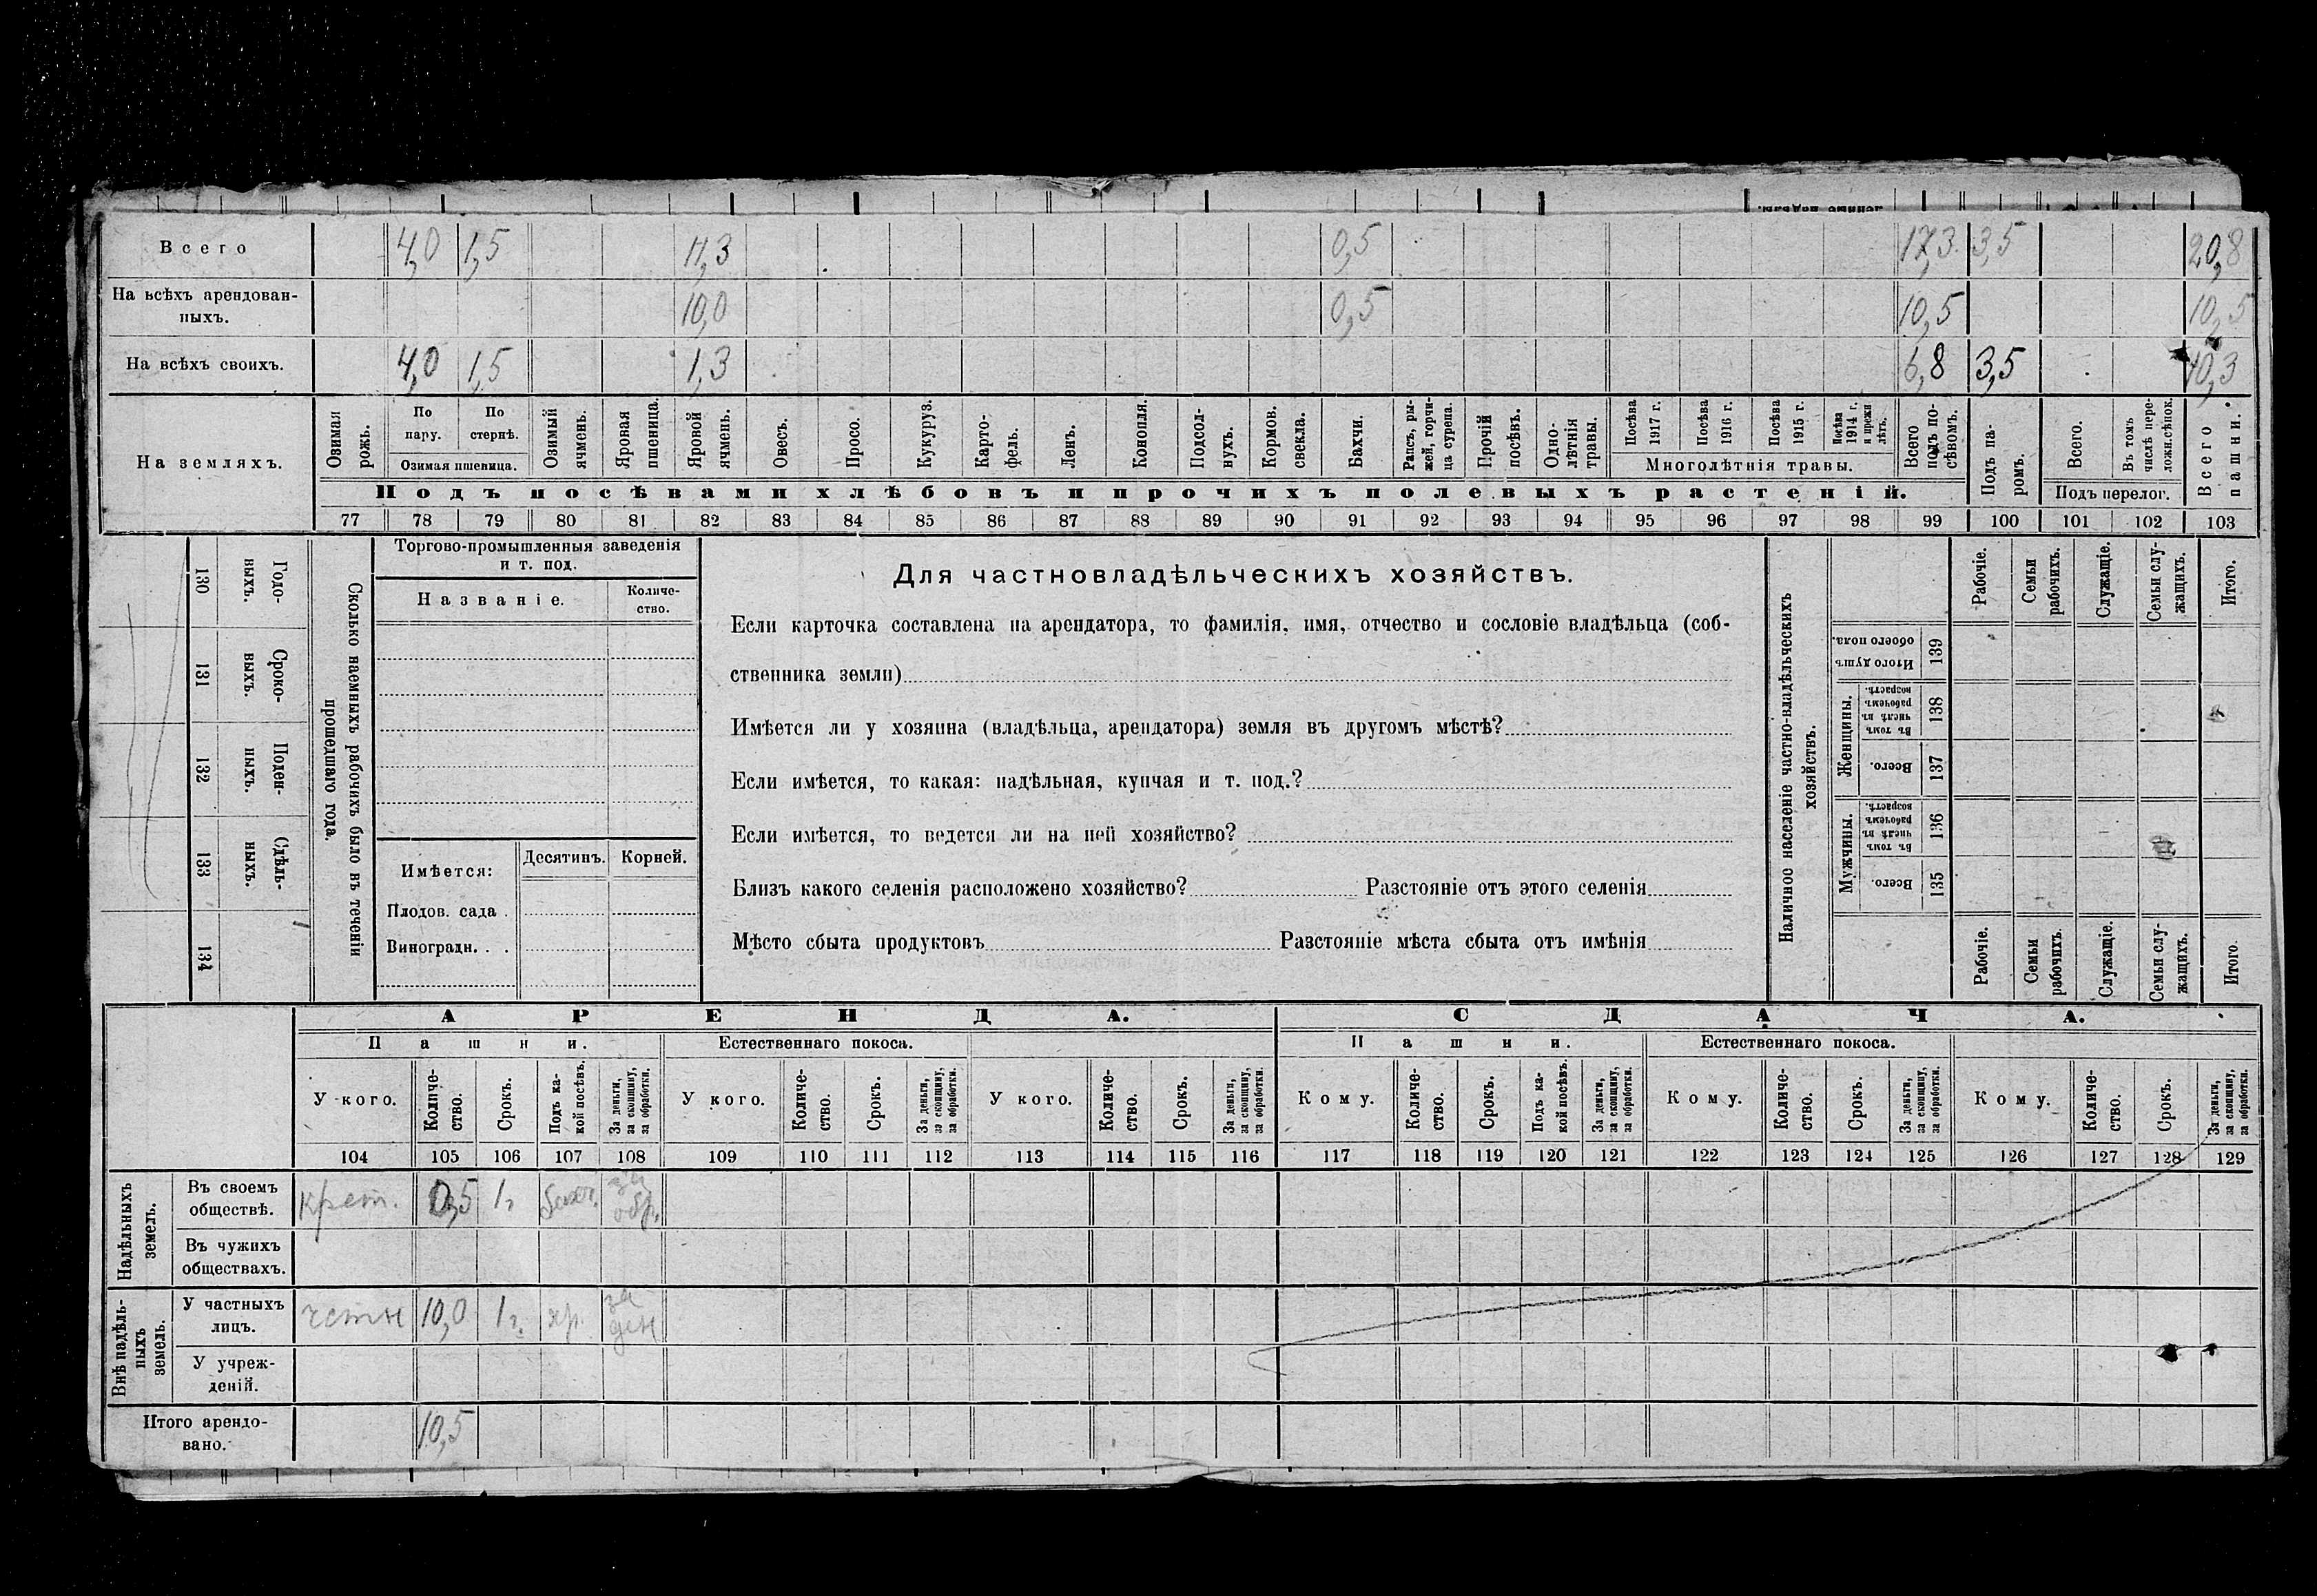 Всего 4,0 1,5 11,3 0,5 17,3 3,5 20,8
На всѣхъ арендован-
ныхъ. 10,0 0,5 10,5 10,5
На всѣхъ своихъ. 4,0 1,5 1,3 6,8 3,5 10,3
На земляхъ.
Озимая рожь.
По пару.
По стернѣ.
Озимая пшеница.
Озимый ячмень.
Яровая пшеница.
Яровой ячмень.
Овесъ.
Просо.
Кукуруз.
Карто-
фель.
Ленъ.
Конопля.
Подсол-
нухъ.
Кормов. свекла.
Бахчи.
Рапсъ, ры-
жей, горчи-
ца сурепа.
Прочій посѣвъ.
Одно-
лѣтнія травы.
Посѣва 1917 г.
Посѣва 1916 г.
Посѣва 1915 г.
Посѣва 1914 г. и прежн лѣтъ.
Многолѣтнія травы.
Всего подъ по-
сѣвомъ.
Подъ па-
ромъ.
Всего.
Въ томъ числѣ пере-
ложн.сѣнок.
Подъ перелог.
Всего пашни.
Подъ посѣвами хлѣбовъ и прочихъ полевыхъ растеній.
77 78 79 80 81 82 83 84 85 86 87 88 89 90 91 92 93 94 95 96 97 98 99 100 101 102 103
Годо-
выхъ.
130
Сроко-
выхъ.
131
Поден-
ныхъ.
132
Сдѣль-
ныхъ.
133
134
Сколько наемныхъ рабочихъ было въ теченіи
прошедшаго года.
Торгово-промышленныя заведенія
и т. под.
Названіе.
Количе-
ство.
Имѣется:
Десятинъ. Корней.
Плодов. сада .
Виноградн. . .
Для частновладѣльческихъ хозяйствъ.
Если карточка составлена на арендатора, то фамилія, имя, отчество и сословіе владѣльца (соб-
ственника земли)
Имѣется ли у хозяина (владѣльца, арендатора) земля въ другомъ мѣстѣ?
Если имѣется, то какая: надѣльная, купчая и т. под.?
Если имѣется, то ведется ли на ней хозяйство?
Близъ какого селенія расположено хозяйство? Разстояніе отъ этого селенія
Мѣсто сбыта продуктовъ Разстояніе мѣста сбыта отъ имѣнія
Наличное населеніе частно-владѣльческихъ
хозяйствъ.
Рабочіе.
Семьи рабочихъ.
Служащіе.
Семьи слу-
жащихъ.
Итого.
Итого душъ обоего пола.
139
Женщины.
Въ томъ числѣ въ рабочемъ возрастѣ.
138
Всего.
137
Мужчины.
Въ томъ числѣ въ рабочемъ возрастѣ.
136
Всего.
135
Рабочіе.
Семьи рабочихъ.
Служащіе.
Семьи слу-
жащихъ.
Итого.
АРЕНДА. СДАЧА.
Пашни. Естественнаго покоса. Пашни. Естественнаго покоса.
У кого.
Количе-
ство.
Срокъ.
Подъ ка-
кой посѣвъ.
За деньги, за скопщину, за обработки.
У кого.
Количе-
ство.
Срокъ.
За деньги, за скопщину, за обработки.
У кого.
Количе-
ство.
Срокъ.
За деньги, за скопщину, за обработки.
Кому.
Количе-
ство.
Срокъ.
Подъ ка-
кой посѣвъ.
За деньги, за скопщину, за обработки.
Кому.
Количе-
ство.
Срокъ.
За деньги, за скопщину, за обработки.
Кому.
Количе-
ство.
Срокъ.
За деньги, за скопщину, за обработки.
104 105 106 107 108 109 110 111 112 113 114 115 116 117 118 119 120 121 122 123 124 125 126 127 128 129
Надѣльныхъ
земель.
Въ своемъ
обществѣ. крест. 0,5 1г за обр.
Въ чужихъ
обществахъ.
Внѣ надѣль-
ныхъ
земель.
У частныхъ
лицъ. 10,0 1г. за ден
У учреж-
деній.
Итого арендо-
вано. 10,5